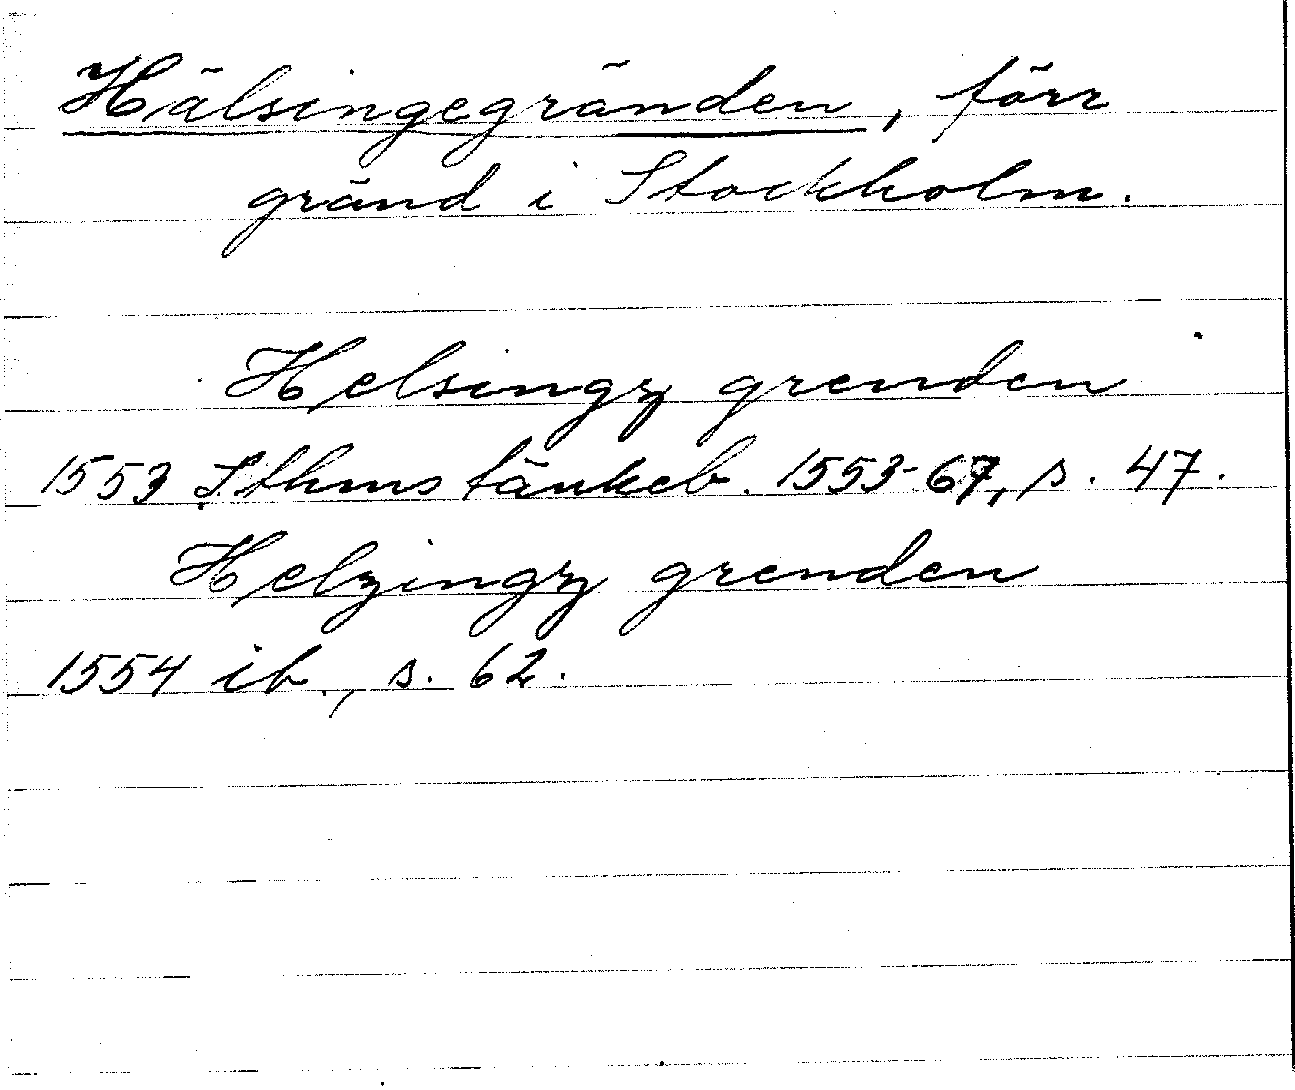 Hälsingegränden, förr
gränd i Stockholm.
Helsingz grenden
1553 Sthms tänkeb. 1553-67, s. 47.
Helzingz grenden
1554 ib., s. 62.